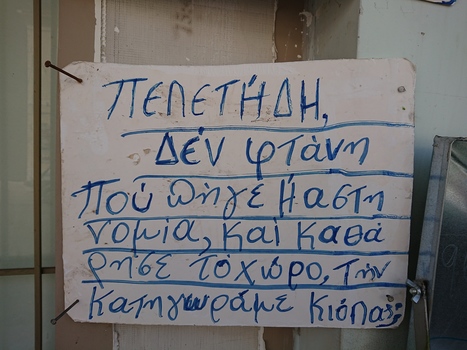 ΠΕΛΕΤΉΔΗ,
ΔΕΝ φτάνη
ΠΟύ πήγε ΜαστΗ
νομία, και καθά
ρησε τόχώρο, την
κατηγωράμε κιόπλας